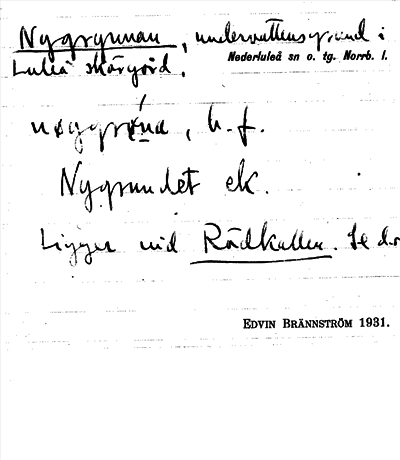 Nygrynnan, undervattensgrund i
Nederluleå sn o. tg. Norrb. l.
Luleå skärgård.
b. f.
Nygrundet ek.
Ligger vid Rödkallen. Se d.o
EDVIN BRÄNNSTRÖM 1931.